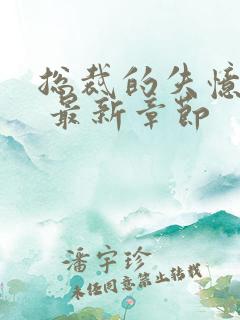 总裁的失忆
最新章节
潘宇珍
未经同意禁止转载